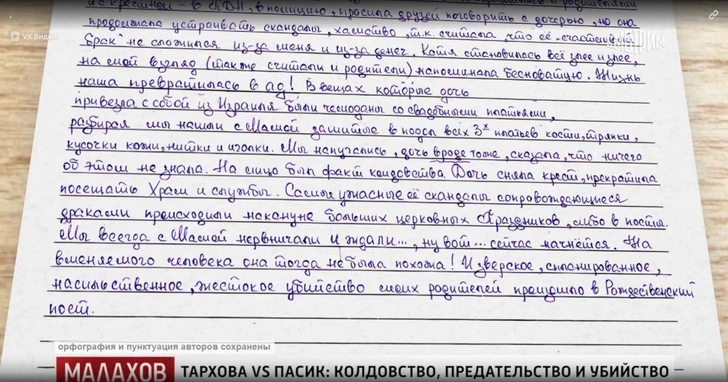 VK Видео
продолжала устраивать скандалы, хамство, т.к. считала что её „счастливый
брак" не сложился из-за меня и из-за денег. Катя становилась всё злее и злее,
на мой взгляд (так же считали и родители) напоминала бесноватую. Жизнь
наша превратилась в ад! В вещах которые дочь
привезла с собой из Израиля были чемоданы со свадебными платьями,
разбирая мы нашли с Мамой зашитые в подол всех 3х платьев кости, тряпки,
кусочки кожи, нитки и иголки. Мы напугались, дочь вроде тоже, сказала, что ничего
об этом не знала. На лицо был факт колдовства. Дочь сняла крест, прекратила
посещать Храм и службы. Самые ужасные её скандалы сопровождающиеся
драками происходили накануне больших церковных Праздников, либо в посты.
Мы всегда с Мамой нервничали и ждали..., ну вот... сейчас начнётся. На
вменяемого человека она тогда не была похожа! Изверское, спланированное,
насильственное, жестокое убийство моих родителей произошло в Рождественский
пост.
орфография и пунктуация авторов сохранены
МАЛАХОВ
ТАРХОВА VS ПАСИК: КОЛДОВСТВО, ПРЕДАТЕЛЬСТВО И УБИЙСТВО